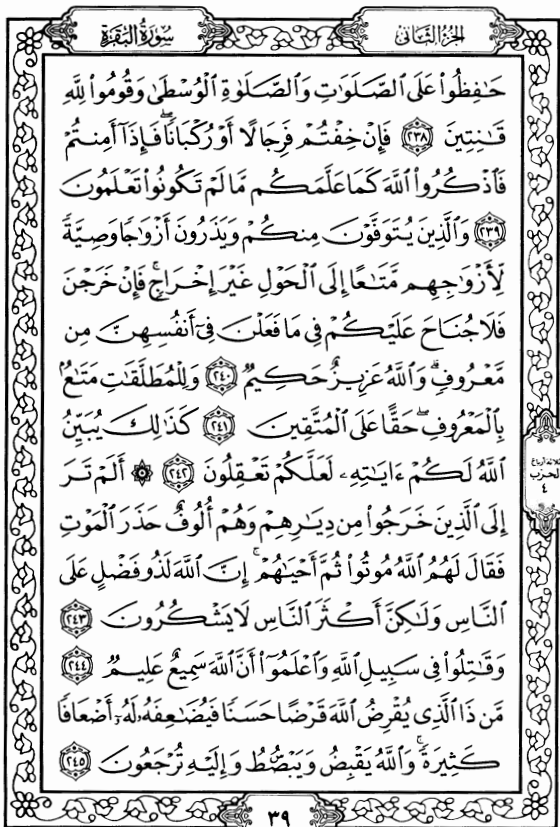 سُورَةُ البَقَرَةِ
الجُزْءُ الثَّانِي
حَٰفِظُوا۟ عَلَى ٱلصَّلَوَٰتِ وَٱلصَّلَوٰةِ ٱلْوُسْطَىٰ وَقُومُوا۟ لِلَّهِ
قَٰنِتِينَ ٢٣٨ فَإِنْ خِفْتُمْ فَرِجَالًا أَوْ رُكْبَانًا ۖ فَإِذَآ أَمِنتُمْ
فَٱذْكُرُوا۟ ٱللَّهَ كَمَا عَلَّمَكُم مَّا لَمْ تَكُونُوا۟ تَعْلَمُونَ
٢٣٩ وَٱلَّذِينَ يُتَوَفَّوْنَ مِنكُمْ وَيَذَرُونَ أَزْوَٰجًا وَصِيَّةً
لِّأَزْوَٰجِهِم مَّتَٰعًا إِلَى ٱلْحَوْلِ غَيْرَ إِخْرَاجٍ ۚ فَإِنْ خَرَجْنَ
فَلَا جُنَاحَ عَلَيْكُمْ فِى مَا فَعَلْنَ فِىٓ أَنفُسِهِنَّ مِن
مَّعْرُوفٍ ۗ وَٱللَّهُ عَزِيزٌ حَكِيمٌ ٢٤٠ وَلِلْمُطَلَّقَٰتِ مَتَٰعٌۢ
بِٱلْمَعْرُوفِ ۖ حَقًّا عَلَى ٱلْمُتَّقِينَ ٢٤١ كَذَٰلِكَ يُبَيِّنُ
ٱللَّهُ لَكُمْ ءَايَٰتِهِۦ لَعَلَّكُمْ تَعْقِلُونَ ٢٤٢ ۞ أَلَمْ تَرَ
إِلَى ٱلَّذِينَ خَرَجُوا۟ مِن دِيَٰرِهِمْ وَهُمْ أُلُوفٌ حَذَرَ ٱلْمَوْتِ
فَقَالَ لَهُمُ ٱللَّهُ مُوتُوا۟ ثُمَّ أَحْيَٰهُمْ ۚ إِنَّ ٱللَّهَ لَذُو فَضْلٍ عَلَى
ٱلنَّاسِ وَلَٰكِنَّ أَكْثَرَ ٱلنَّاسِ لَا يَشْكُرُونَ ٢٤٣
وَقَٰتِلُوا۟ فِى سَبِيلِ ٱللَّهِ وَٱعْلَمُوٓا۟ أَنَّ ٱللَّهَ سَمِيعٌ عَلِيمٌ ٢٤٤
مَّن ذَا ٱلَّذِى يُقْرِضُ ٱللَّهَ قَرْضًا حَسَنًا فَيُضَٰعِفَهُۥ لَهُۥٓ أَضْعَافًا
كَثِيرَةً ۚ وَٱللَّهُ يَقْبِضُ وَيَبْصُۜطُ وَإِلَيْهِ تُرْجَعُونَ ٢٤٥
ثلاثة أرباع
الحزب
٤
٣٩